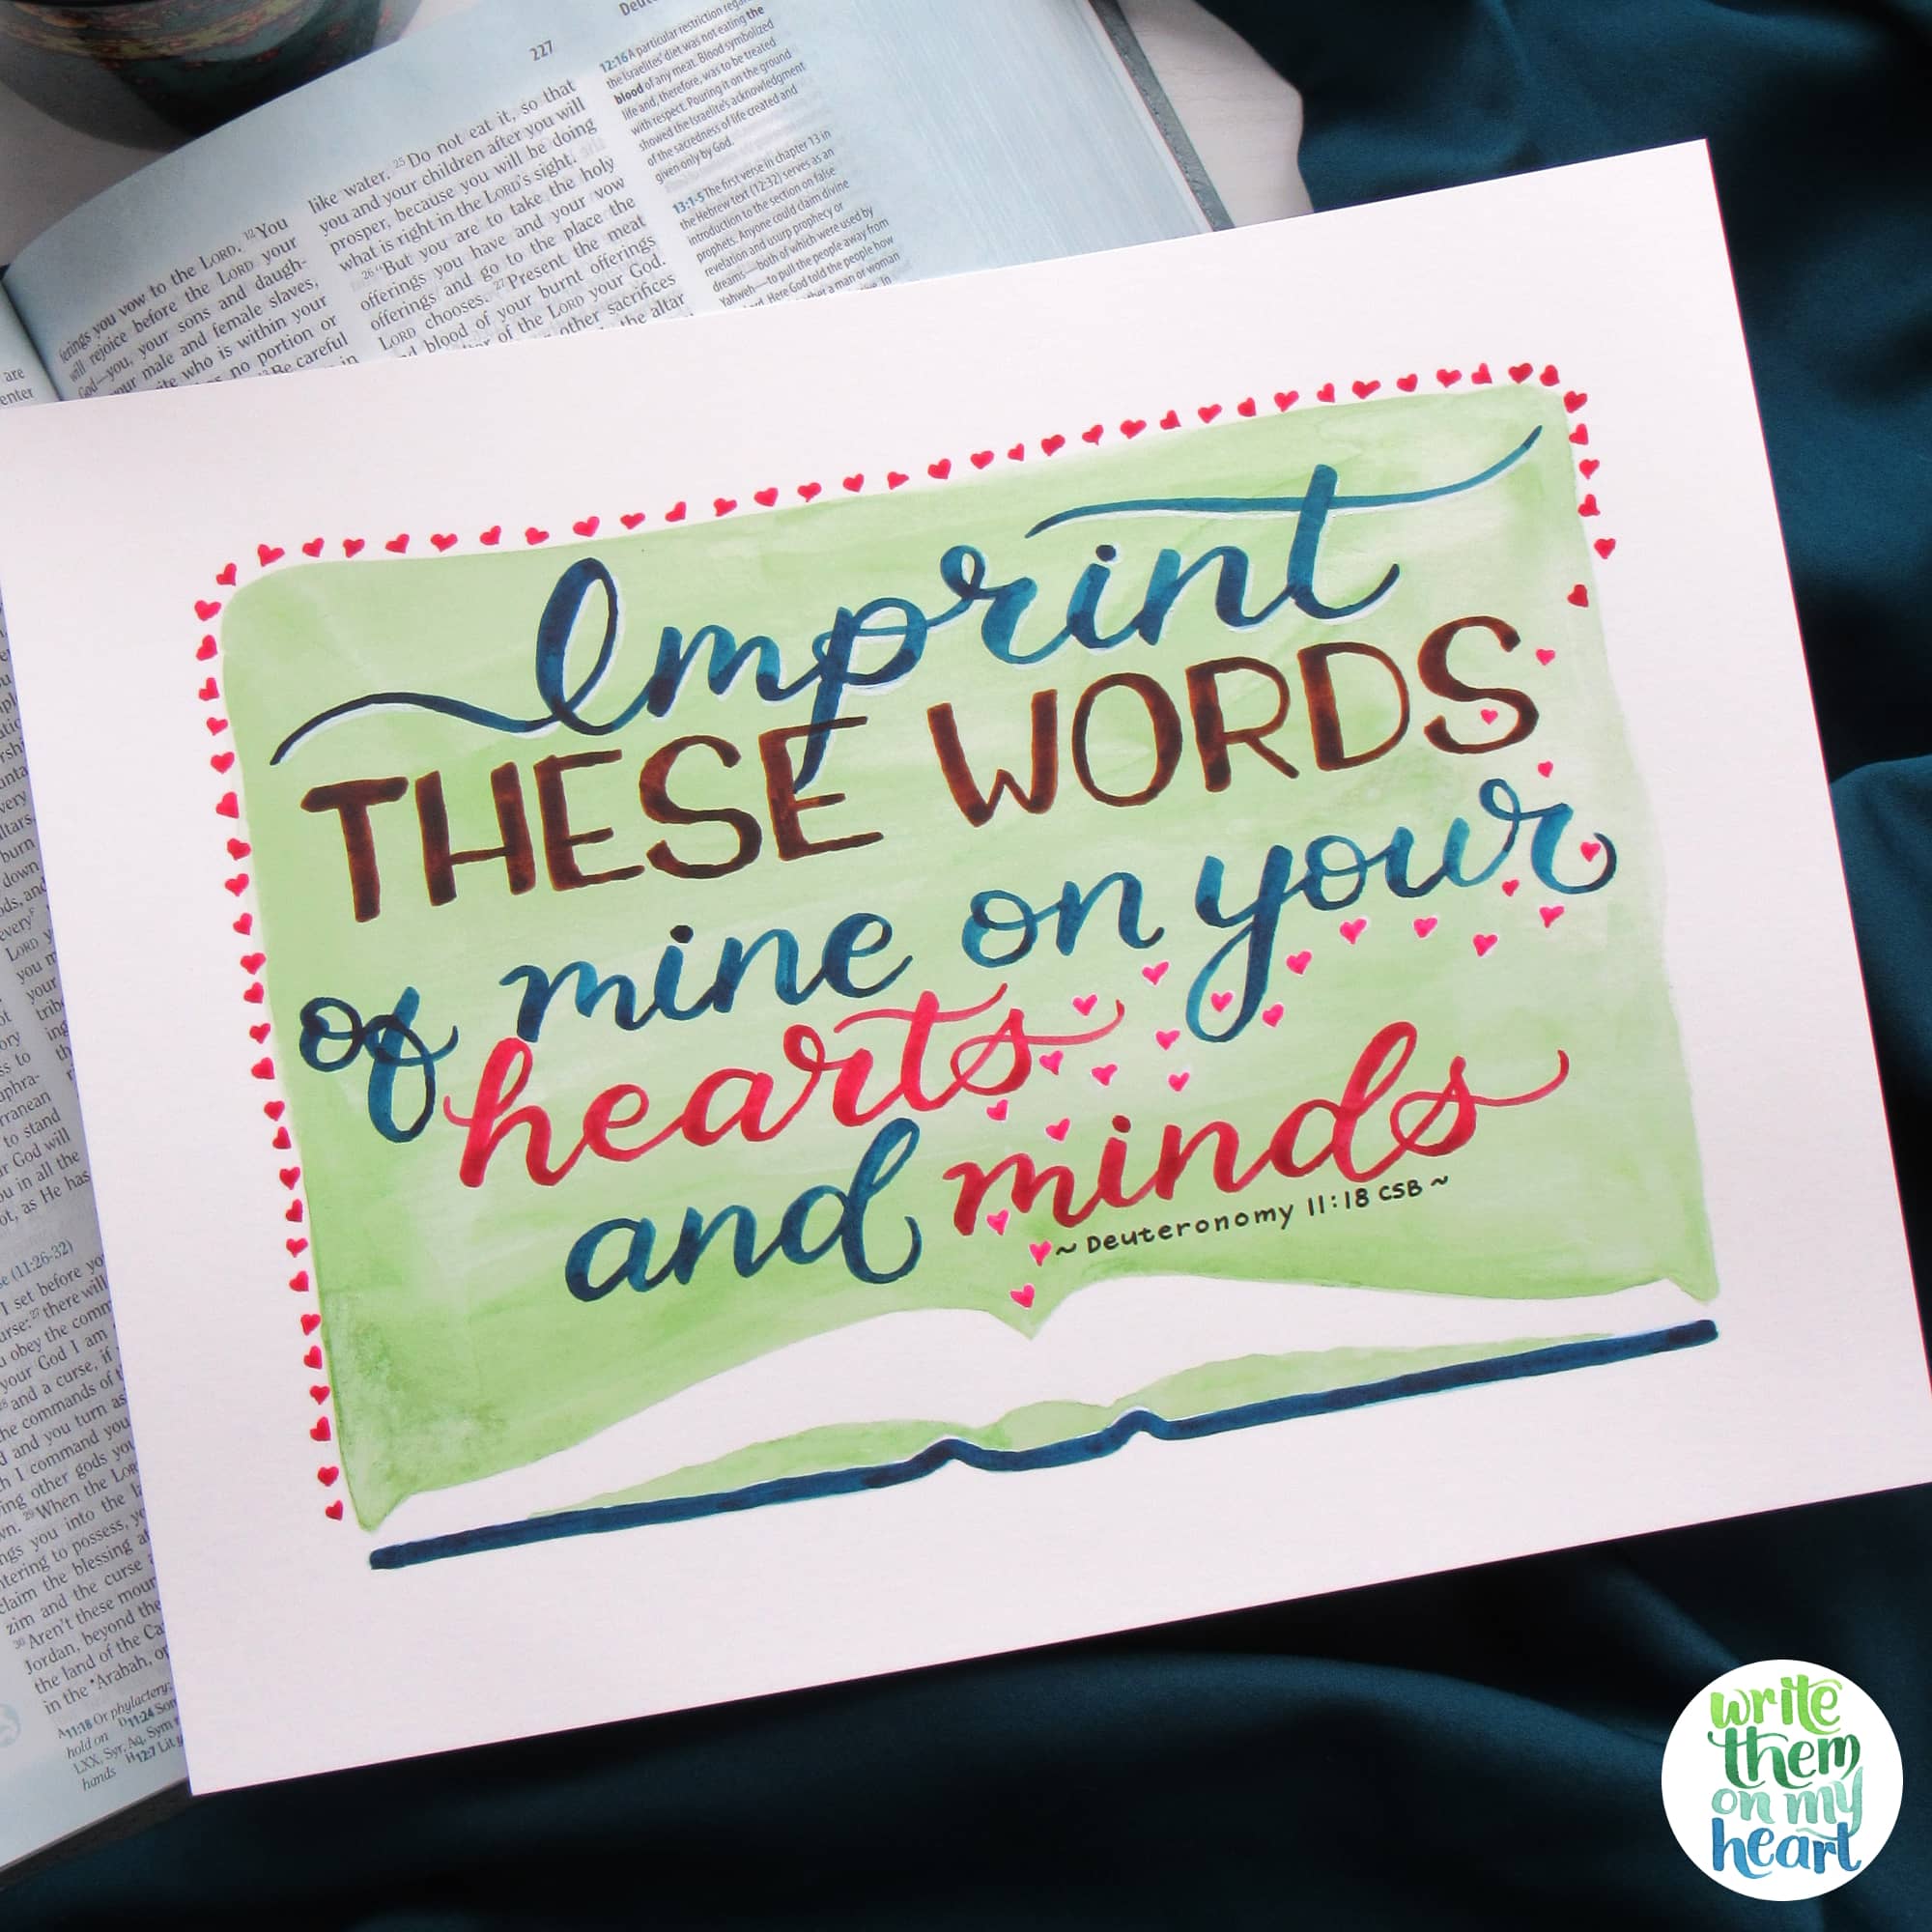 227
Deut
12:16 A particular restriction rega
the Israelites' diet was not eating the
blood of any meat. Blood symbolized
life and, therefore, was to be treated
with respect. Pouring it on the ground
showed the Israelite's acknowledgment
of the sacredness of life created and
given only by God.
13:1-5 The first verse in chapter 13 in
the Hebrew text (12:32) serves as an
introduction to the section on false
prophets. Anyone could claim divine
revelation and usurp prophecy or
dreams—both of which were used by
Yahweh—to pull the people away from
Here God told the people how
a man or woman
like water. 25 Do not eat it, so that
you and your children after you will
prosper, because you will be doing
what is right in the LORD's sight.
26 "But you are to take the holy
offerings you have and your vow
offerings and go to the place the
LORD chooses. 27 Present the meat
blood of your burnt offerings
of the LORD your God.
other sacrifices
the altar
ferings you vow to the LORD. 12 You
will rejoice before the LORD your
God—you, your sons and daugh-
your male and female slaves,
who is within your
no portion or
Be careful
in
are
enter
Imprint
THESE WORDS
of mine on your
hearts
and minds
~ Deuteronomy 11:18 CSB ~
burn
down
ods, and
every
LORD
rranean
to stand
r God will
ou in all the
ot, as He has
(11:26-32)
I set before yo
27 there will
obey the comm
your God I am
28 and a curse, if
he commands of
and you turn as
h I command you
ing other gods you
29 When the LOR
ngs you into the
ntering to possess,
claim the blessing
zim and the curse
30 Aren't these moun
Jordan, beyond the
the land of the Ca
in the Arabah, o
A 11:18 Or phylactery;
hold on D 11:24
LXX, Syr, Aq, Sym
hands H 12:7 Lit
write
them
on my
heart